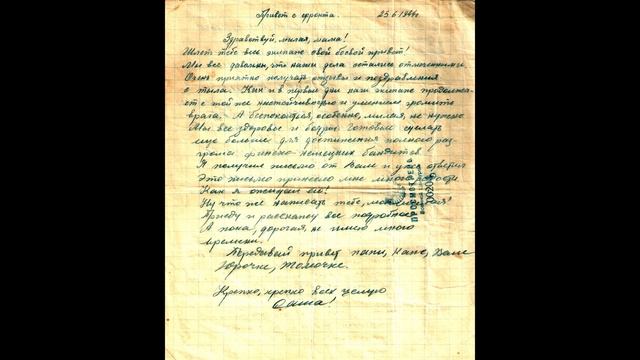 Привет с фронта. 25.6.1944г.
Здравствуй, милая, мама!
Шлет тебе весь экипаж свой боевой привет!
Мы все довольны, что наши дела остались отмеченными.
Очень приятно получать отзывы и поздравления
с тыла. Как и в первые дни наш экипаж продолжа-
ет с той же настойчивостью и умением громить
врага. А беспокоиться, особенно, милая, не нужно
Мы все здоровые и бодрые готовы сделать
еще больше для достижения полного раз-
грома финско немецких бандитов
Я получил письмо от Вали и уже ответил
Это письмо принесло мне много радости
Как я ожидал его!
Ну что же написать тебе, моя
Приеду и расскажу все подробнее
А пока, дорогая, не имею много
времени.
Передавай привет папе, Вале
Юрочке, Томочке.
Крепко, крепко всех целую
Саша!
ПРОСМОТРЕНО